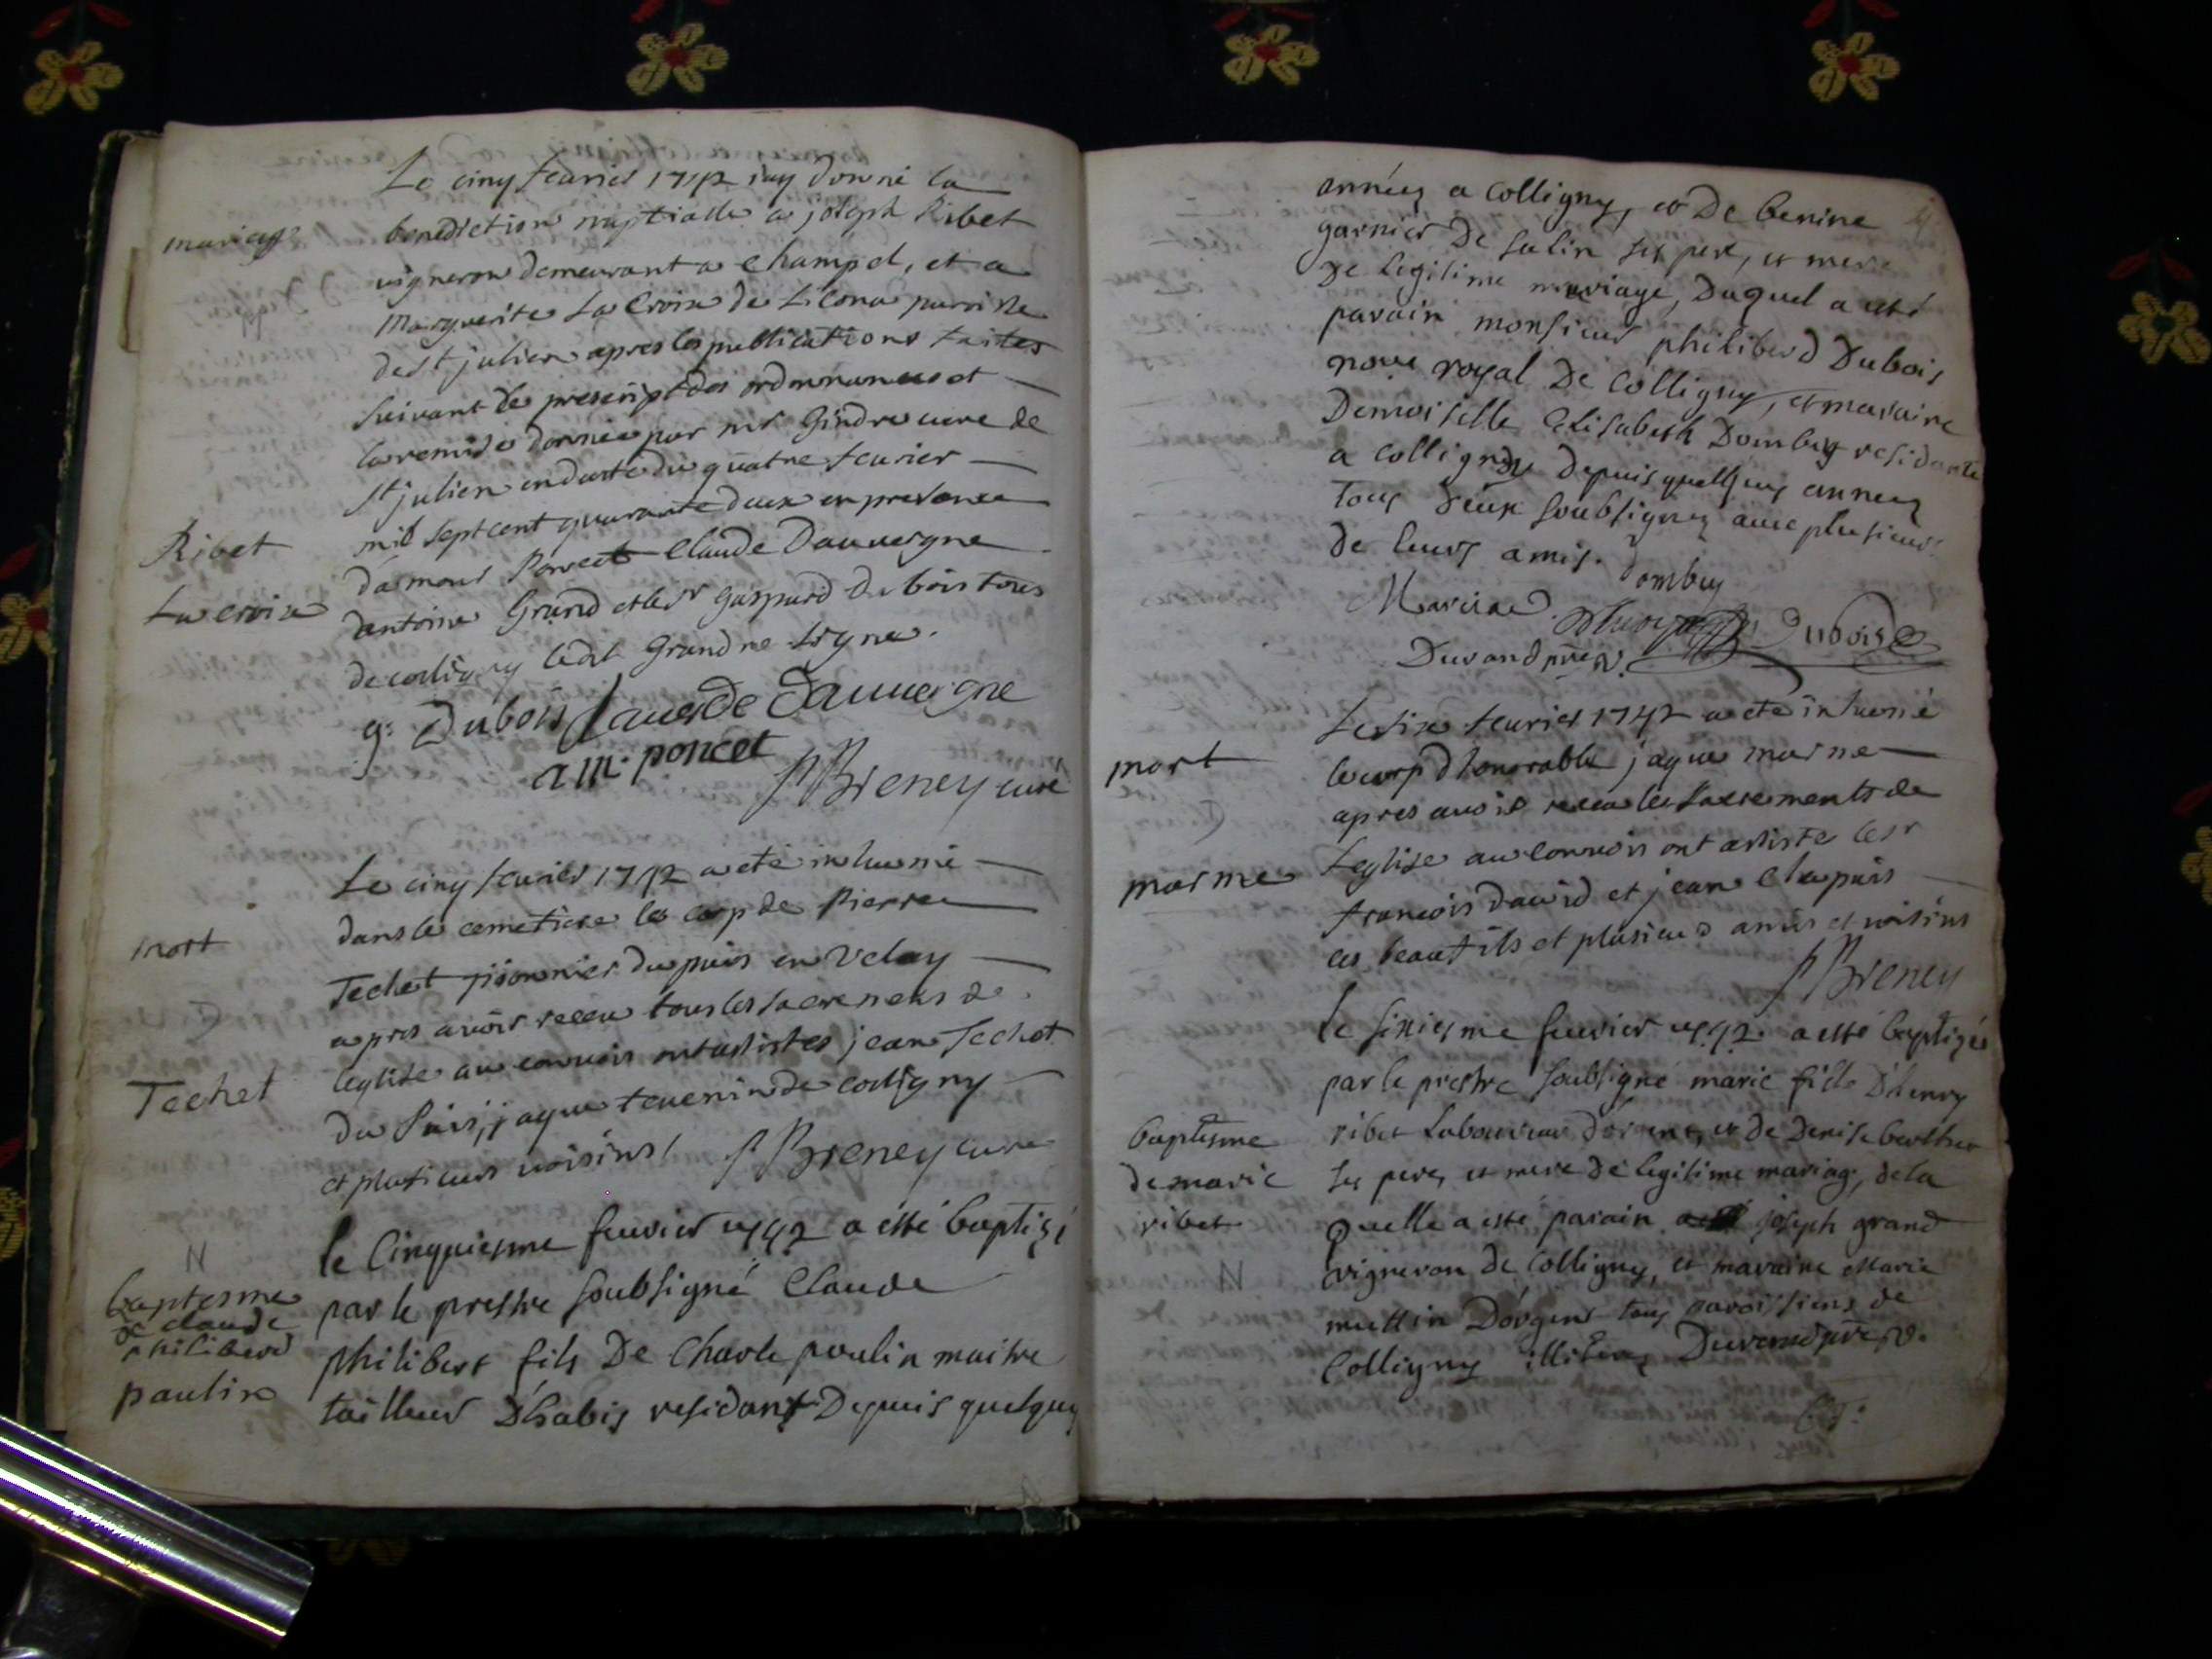 Le cinq feurier 1742 iay donné la
mariage
benediction nuptialle a joseph Ribet
uigneron demeurant a Champel, et a
Marguerite La Croix de Licona paroisse
de st julien apres les publications faites
suivant le prescript des ordonnances et
la remise donnée par mr Gindre cure de
st julien en datte du quatre feurier
mil sept cent quarante deux en presence
Ribet
damour Poncet Claude Dauuergne
La croix
antoine Grand et le sr Gaspard Dubois tous
de colligny ledit Grand ne signe.
g: Dubois Claude Dauuergne
am: poncet
Breney curé
Le cinq feurier 1742 a eté inhumé
mort
dans le cemetiere le corp de Pierre
Techet du puis en Velay
apres auoir receu tous les sacremens de
leglise au conuois ont assistes jean Techet
Techet
du Puis, jaque teuenin de colligny
et plusieurs uoisins / Breney cure
N
le Cinquiesme feuvier 1742 a esté baptizé
baptesme
de claude
philiberd
paulin
par le prestre soubsigné Claude
philibert fils De Charle poulin maitre
tailleur D'habis residant Depuis quelques
années a Colligny, et De benine
garnier De salin ses pere, et mere
De legitime mariage, Duquel a esté
parain monsieur philiberd Dubois
nore royal De Colligny, et maraine
Demoiselle Elisabeth Dombey residante
a Colligny depuis quelques années
tous deux soubsignez avec plusieurs
de leurs amis. Dombey
Dubois
Durand ptre v.
Le six feurier 1742 a eté inhumé
mort
le corp dhonorable jaque marme
apres auoir receu les sacrements de
Leglise au conuois ont assiste les sr
marme
francois Dauid et jean Chapuis
ces beaufils et plusieurs amis et uoisins
Breney
le sixiesme feuvier 1742. a esté baptizée
par le prestre soubsigné marie fille D'henry
baptesme
ribet Laboureur d'orgent, et de Denise berthet
de marie
ses pere, et mere De legitime mariage, de la
ribet
quelle a esté parain joseph grand
N
vigneron de Colligny, et maraine Marie
muttin D'orgent tous paroissiens de
Colligny illiterez Durand ptre v.